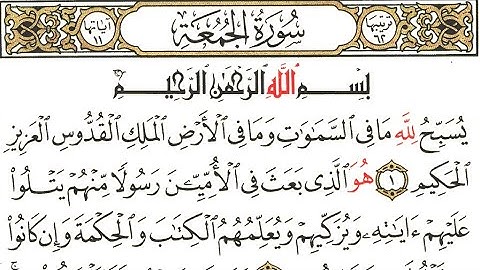 ترتيبها ٦٢ سُورَةُ الجُمُعَة آياتها ١١
بِسْمِ اللَّهِ الرَّحْمَٰنِ الرَّحِيمِ
يُسَبِّحُ لِلَّهِ مَا فِى ٱلسَّمَٰوَٰتِ وَمَا فِى ٱلْأَرْضِ ٱلْمَلِكِ ٱلْقُدُّوسِ ٱلْعَزِيزِ
ٱلْحَكِيمِ ١ هُوَ ٱلَّذِى بَعَثَ فِى ٱلْأُمِّيِّـۧنَ رَسُولًا مِّنْهُمْ يَتْلُوا۟
عَلَيْهِمْ ءَايَٰتِهِۦ وَيُزَكِّيهِمْ وَيُعَلِّمُهُمُ ٱلْكِتَٰبَ وَٱلْحِكْمَةَ وَإِن كَانُوا۟